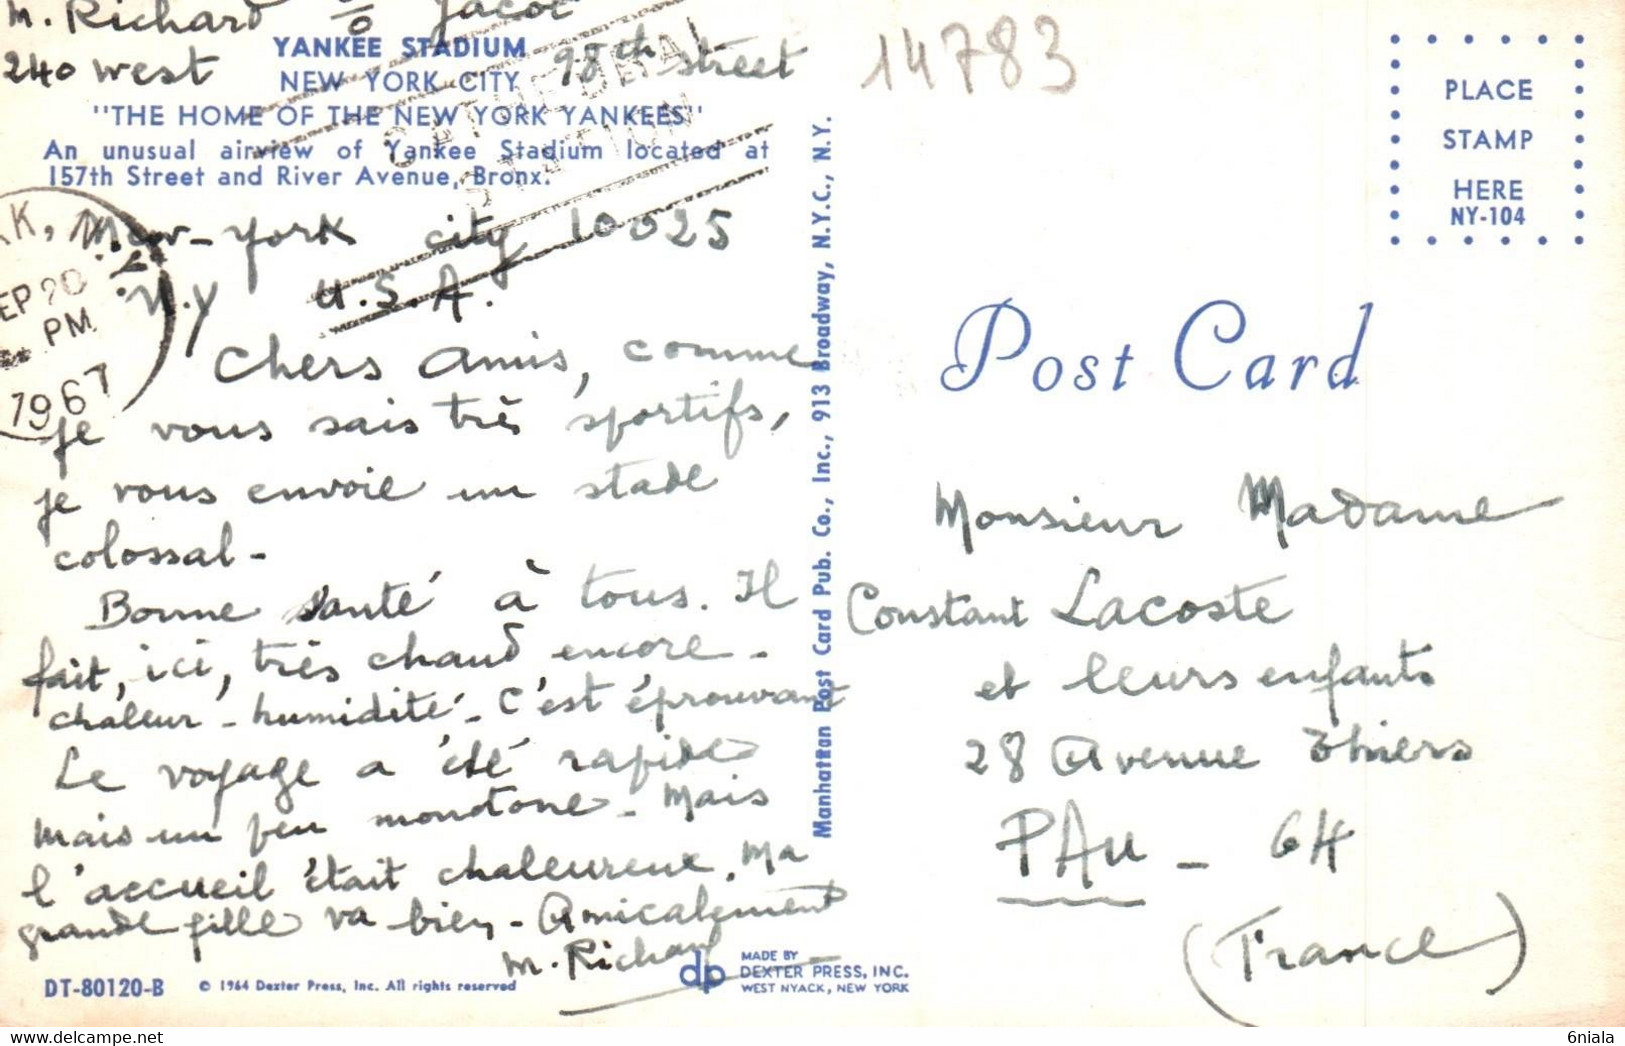 M. Richard c/o Jacot
240 west 98th street
YANKEE STADIUM
NEW YORK CITY
"THE HOME OF THE NEW YORK YANKEES"
An unusual airview of Yankee Stadium located at
157th Street and River Avenue, Bronx.
CATHEDRAL
STATION
SEP 20
PM
1967
New-York city 10025
N.Y U.S.A.
Chers amis, comme
je vous sais très sportifs,
je vous envoie un stade
colossal-
Bonne santé à tous. Il
fait, ici, très chaud encore-
chaleur-humidité- C'est éprouvant
Le voyage a été rapide
mais un peu monotone- Mais
l'accueil était chaleureux. Ma
grande fille va bien- Amicalement
M. Richard
DT-80120-B © 1964 Dexter Press, Inc. All rights reserved
dp
MADE BY
DEXTER PRESS, INC.
WEST NYACK, NEW YORK
Manhattan Post Card Pub. Co., Inc., 913 Broadway, N.Y.C., N.Y.
14783
PLACE
STAMP
HERE
NY-104
Post Card
Monsieur Madame
Constant Lacoste
et leurs enfants
28 Avenue Thiers
PAU - 64
(France)
6niala